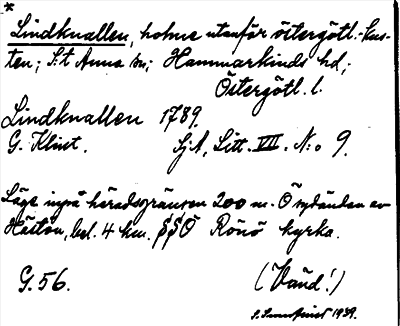 *
Lindknallen, holme utanför östergötl.-kus-
ten; S:t Anna sn; Hammarkinds hd;
Östergötl. l.
Lindknallen 1789.
G. Klint. SjA, Litt. VII. N:o 9.
Läge inpå häradsgränsen 200 m. Ö sydändan av
Hästön, bel. 4 km. SSO Rönö kyrka.
G. 56. (Vänd!)
1939.